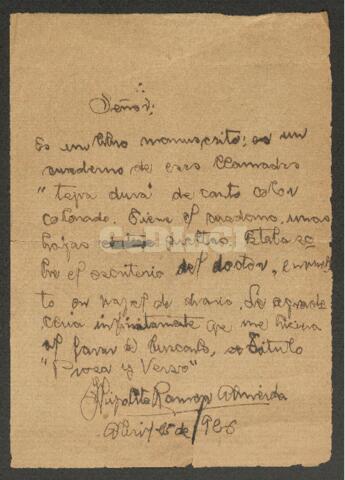 Señor:
Es un libro manuscrito; es un
cuaderno de esos llamados
"tapa dura" de canto color
colorado. Tiene el cuaderno, unas
hojas sueltas. Estaba so
bre el escritorio del doctor, envuel
to en papel de diario. Le agrade
ceria infinitamente que me hiciera
el favor de buscarlo, se titula
"Prosa y Verso"
Hipolito Ramon Almeida
de